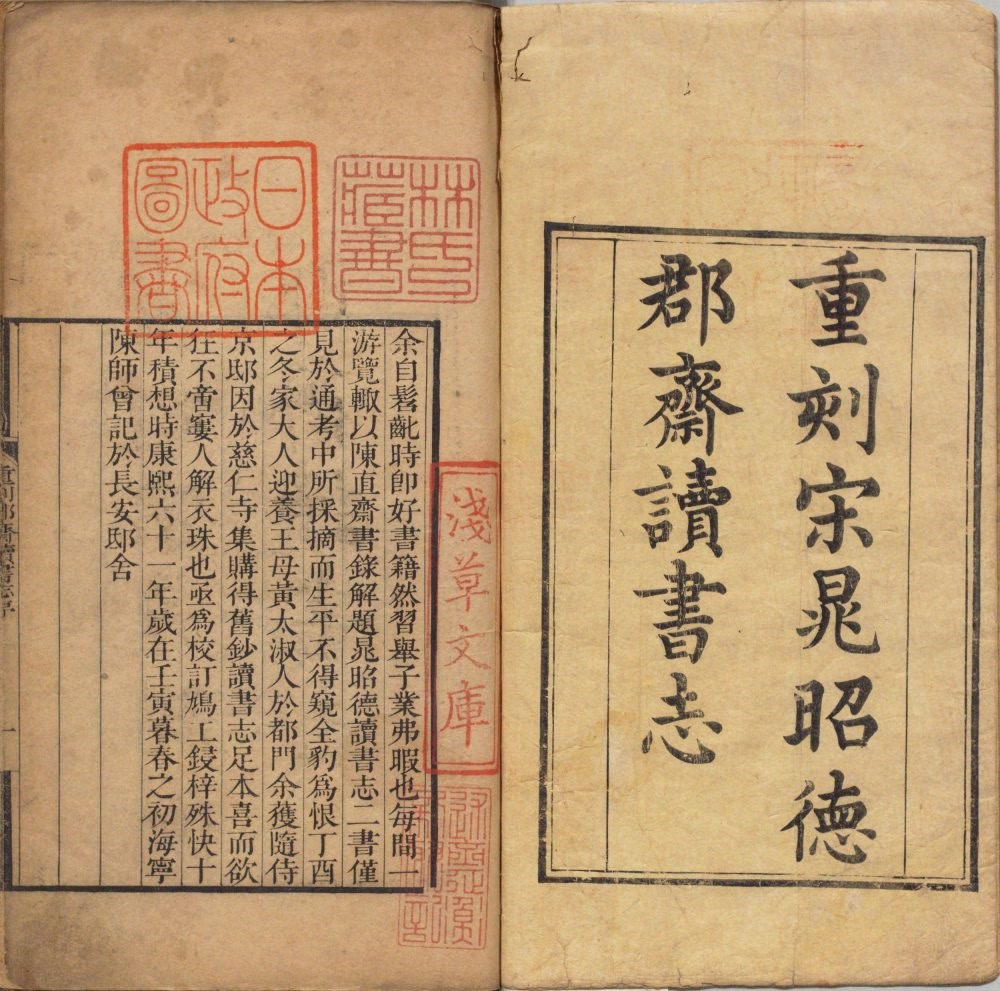 重刻宋晁昭德
郡齋讀書志
林氏
藏書
日本
政府
圖書
淺草文庫
余自髫齔時卽好書籍然習舉子業弗暇也每間一
游覽輙以陳直齋書錄解題晁昭德讀書志二書僅
見於通考中所採摘而生平不得窺全豹爲恨丁酉
之冬家大人迎養王母黃太淑人於都門余獲隨侍
京邸因於慈仁寺集購得舊鈔讀書志足本喜而欲
狂不啻窶人解衣珠也亟爲校訂鳩工鋟梓殊快十
年積想時康熙六十一年歲在壬寅暮春之初海寧
陳師曾記於長安邸舍
重刻郡齋讀書志序
一